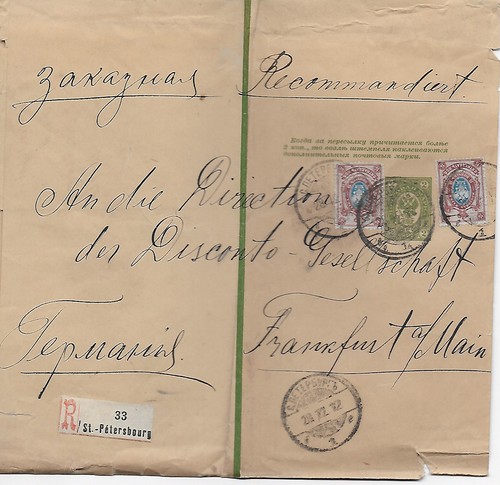 заказная. Recommandiert.
Когда за пересылку причитается болѣе
2 коп., то возлѣ штемпеля наклеиваются
дополнительныя почтовыя марки.
An die Direction
der Disconto-Gesellschaft
Германія. Frankfurt a/Main
R 33
/St.-Pétersbourg
С.ПЕТЕРБУРГЪ
1